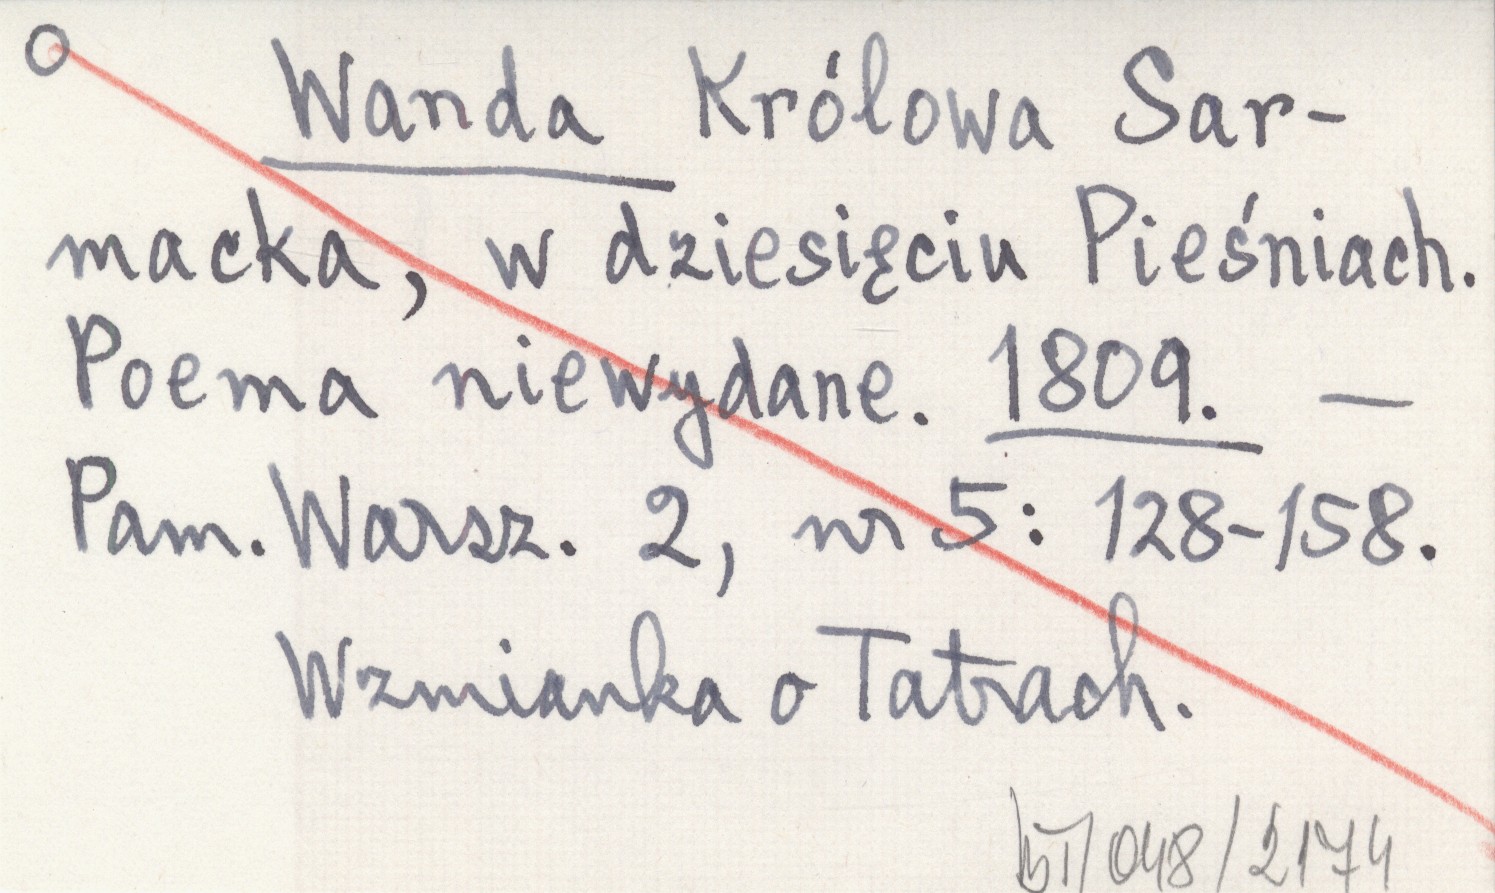 Wanda Królowa Sar-
macka, w dziesięciu Pieśniach.
Poema niewydane. 1809. —
Pam. Warsz. 2, nr 5: 128-158.
Wzmianka o Tatrach.
/048/2174